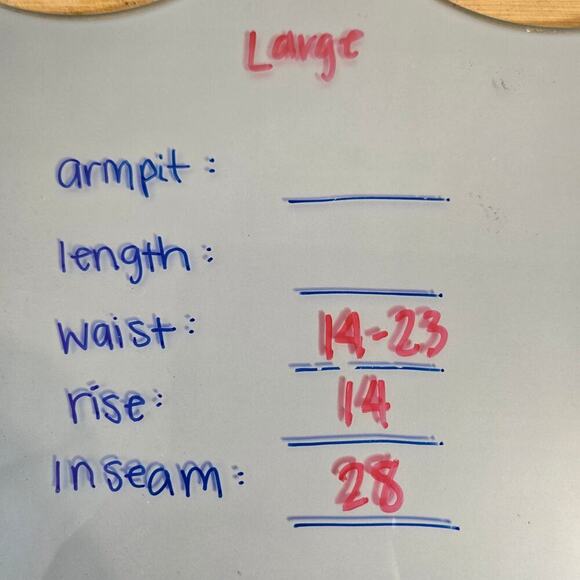 Large
armpit:
length:
waist: 14-23
rise: 14
inseam: 28